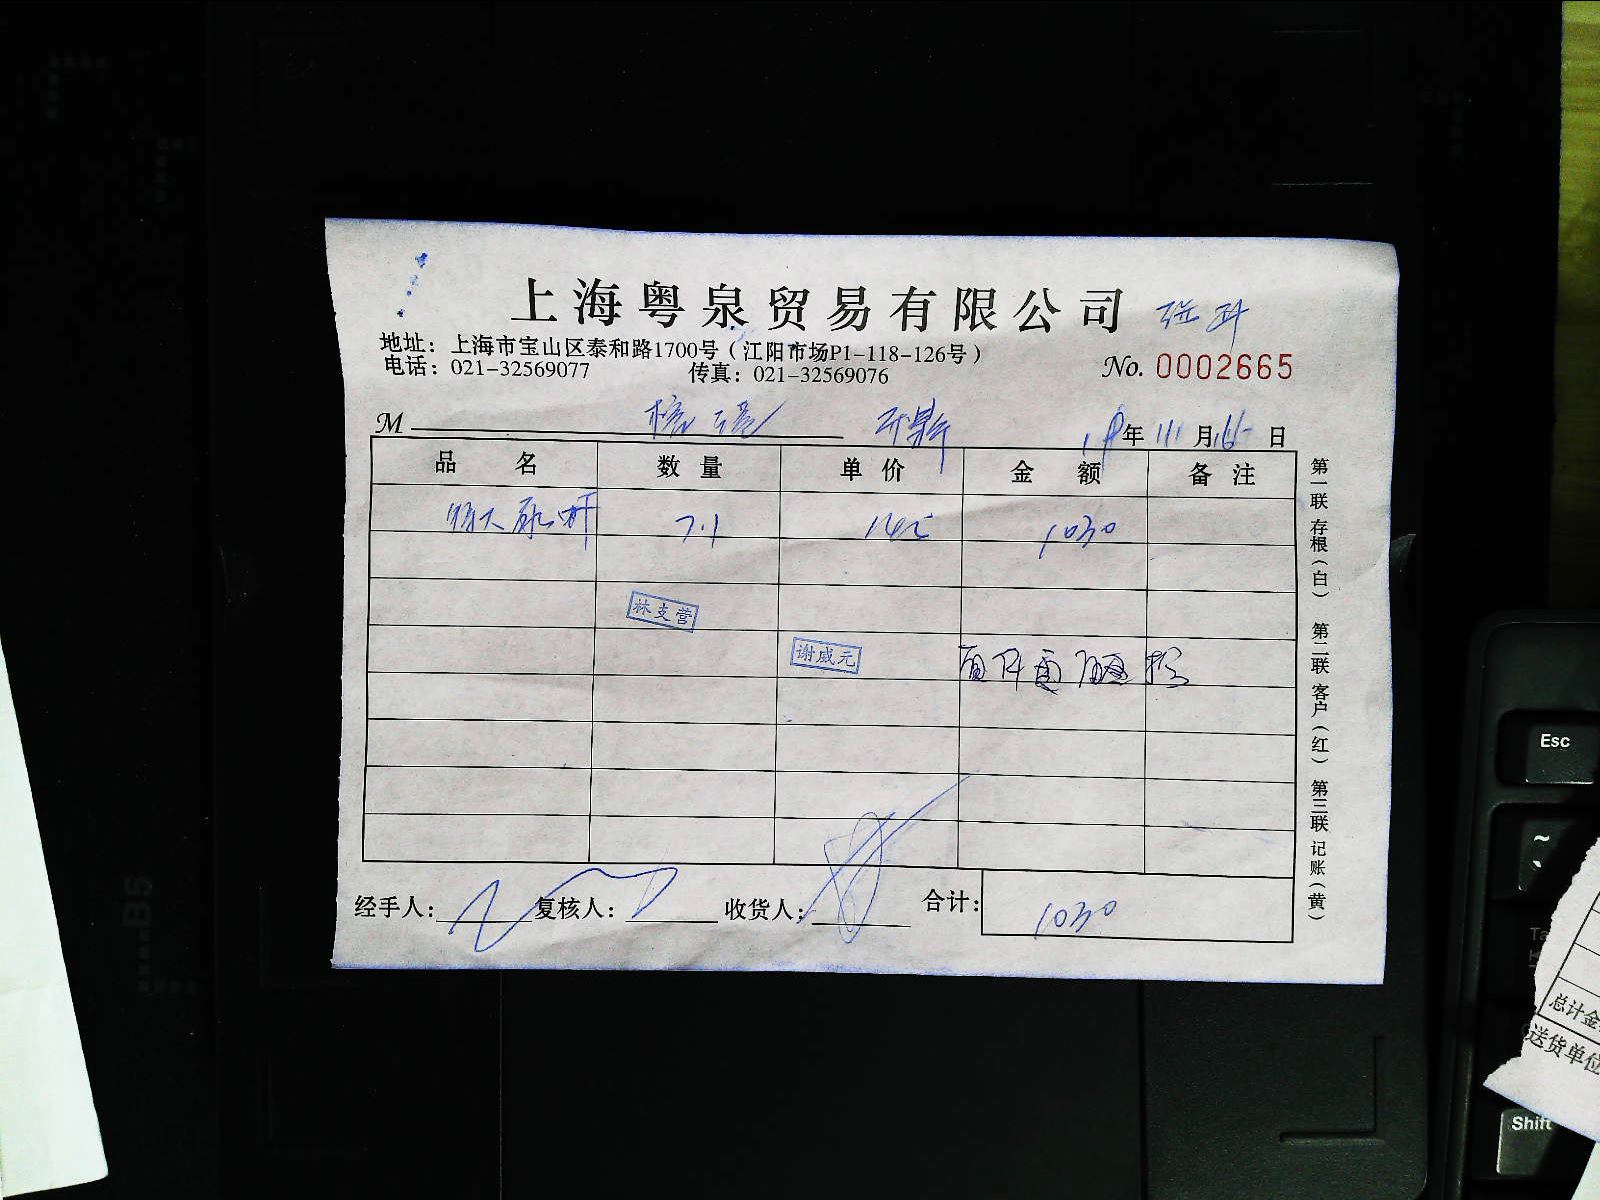 上海粤泉贸易有限公司
地址：上海市宝山区泰和路1700号（江阳市场P1-118-126号）
电话：021-32569077 传真：021-32569076
No. 0002665
M 年 月 日
品名 数量 单价 金额 备注
特大 7.1 145 1030
林支营
谢威元
经手人： 复核人： 收货人： 合计： 1030
第一联 存根（白） 第二联 客户（红） 第三联 记账（黄）
Esc
~
`
Shift
总计金
送货单位